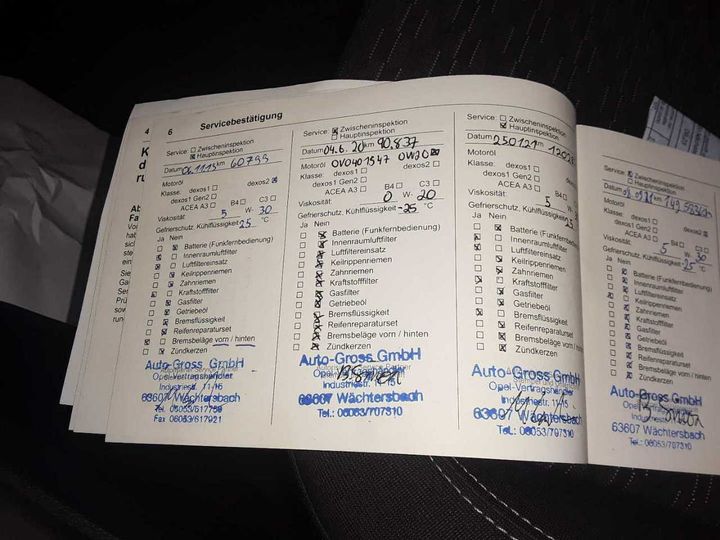 4 6 Servicebestätigung
Service: Zwischeninspektion
Hauptinspektion
Datum 06.11.19 km 60799
Motoröl
Klasse: dexos1 dexos2
dexos1 Gen2
ACEA A3 B4 C3
Viskosität: 5 W- 30
Gefrierschutz, Kühlflüssigkeit -25 °C
Ja Nein
Batterie (Funkfernbedienung)
Innenraumluftfilter
Luftfiltereinsatz
Keilrippenriemen
Zahnriemen
Kraftstofffilter
Gasfilter
Getriebeöl
Bremsflüssigkeit
Reifenreparaturset
Bremsbeläge vorn / hinten
Zündkerzen
Auto-Gross GmbH
Opel-Vertragshändler
Industriestr. 11-15
63607 Wächtersbach
Tel. 06053/617759
Fax 06053/617921
Service: Zwischeninspektion
Hauptinspektion
Datum 04.6.20 km 90.837
Motoröl 0V0401547 0W20
Klasse: dexos1 dexos2
dexos1 Gen2
ACEA A3 B4 C3
Viskosität: 0 W- 20
Gefrierschutz, Kühlflüssigkeit -25 °C
Ja Nein
Batterie (Funkfernbedienung)
Innenraumluftfilter
Luftfiltereinsatz
Keilrippenriemen
Zahnriemen
Kraftstofffilter
Gasfilter
Getriebeöl
Bremsflüssigkeit
Reifenreparaturset
Bremsbeläge vorn / hinten
Zündkerzen
Auto-Gross GmbH
Opel-Vertragshändler
Industriestr.
63607 Wächtersbach
Tel.: 06053/707310
Service: Zwischeninspektion
Hauptinspektion
Datum 250121 km
Motoröl
Klasse: dexos1 dexos2
dexos1 Gen2
ACEA A3 B4 C3
Viskosität: 5 W- 30
Gefrierschutz, Kühlflüssigkeit °C
Ja Nein
Batterie (Funkfernbedienung)
Innenraumluftfilter
Luftfiltereinsatz
Keilrippenriemen
Zahnriemen
Kraftstofffilter
Gasfilter
Getriebeöl
Bremsflüssigkeit
Reifenreparaturset
Bremsbeläge vorn / hinten
Zündkerzen
Auto-Gross GmbH
Opel-Vertragshändler
Industriestr. 11-15
63607 Wächtersbach
Tel.: 06053/707310
Service: Zwischeninspektion
Hauptinspektion
Datum km
Motoröl
Klasse: dexos1 dexos2
dexos1 Gen2
ACEA A3 B4 C3
Viskosität: 5 W- 30
Gefrierschutz, Kühlflüssigkeit -25 °C
Ja Nein
Batterie (Funkfernbedienung)
Innenraumluftfilter
Luftfiltereinsatz
Keilrippenriemen
Zahnriemen
Kraftstofffilter
Gasfilter
Getriebeöl
Bremsflüssigkeit
Reifenreparaturset
Bremsbeläge vorn / hinten
Zündkerzen
Auto-Gross GmbH
63607 Wächtersbach
Tel.: 06053/707310